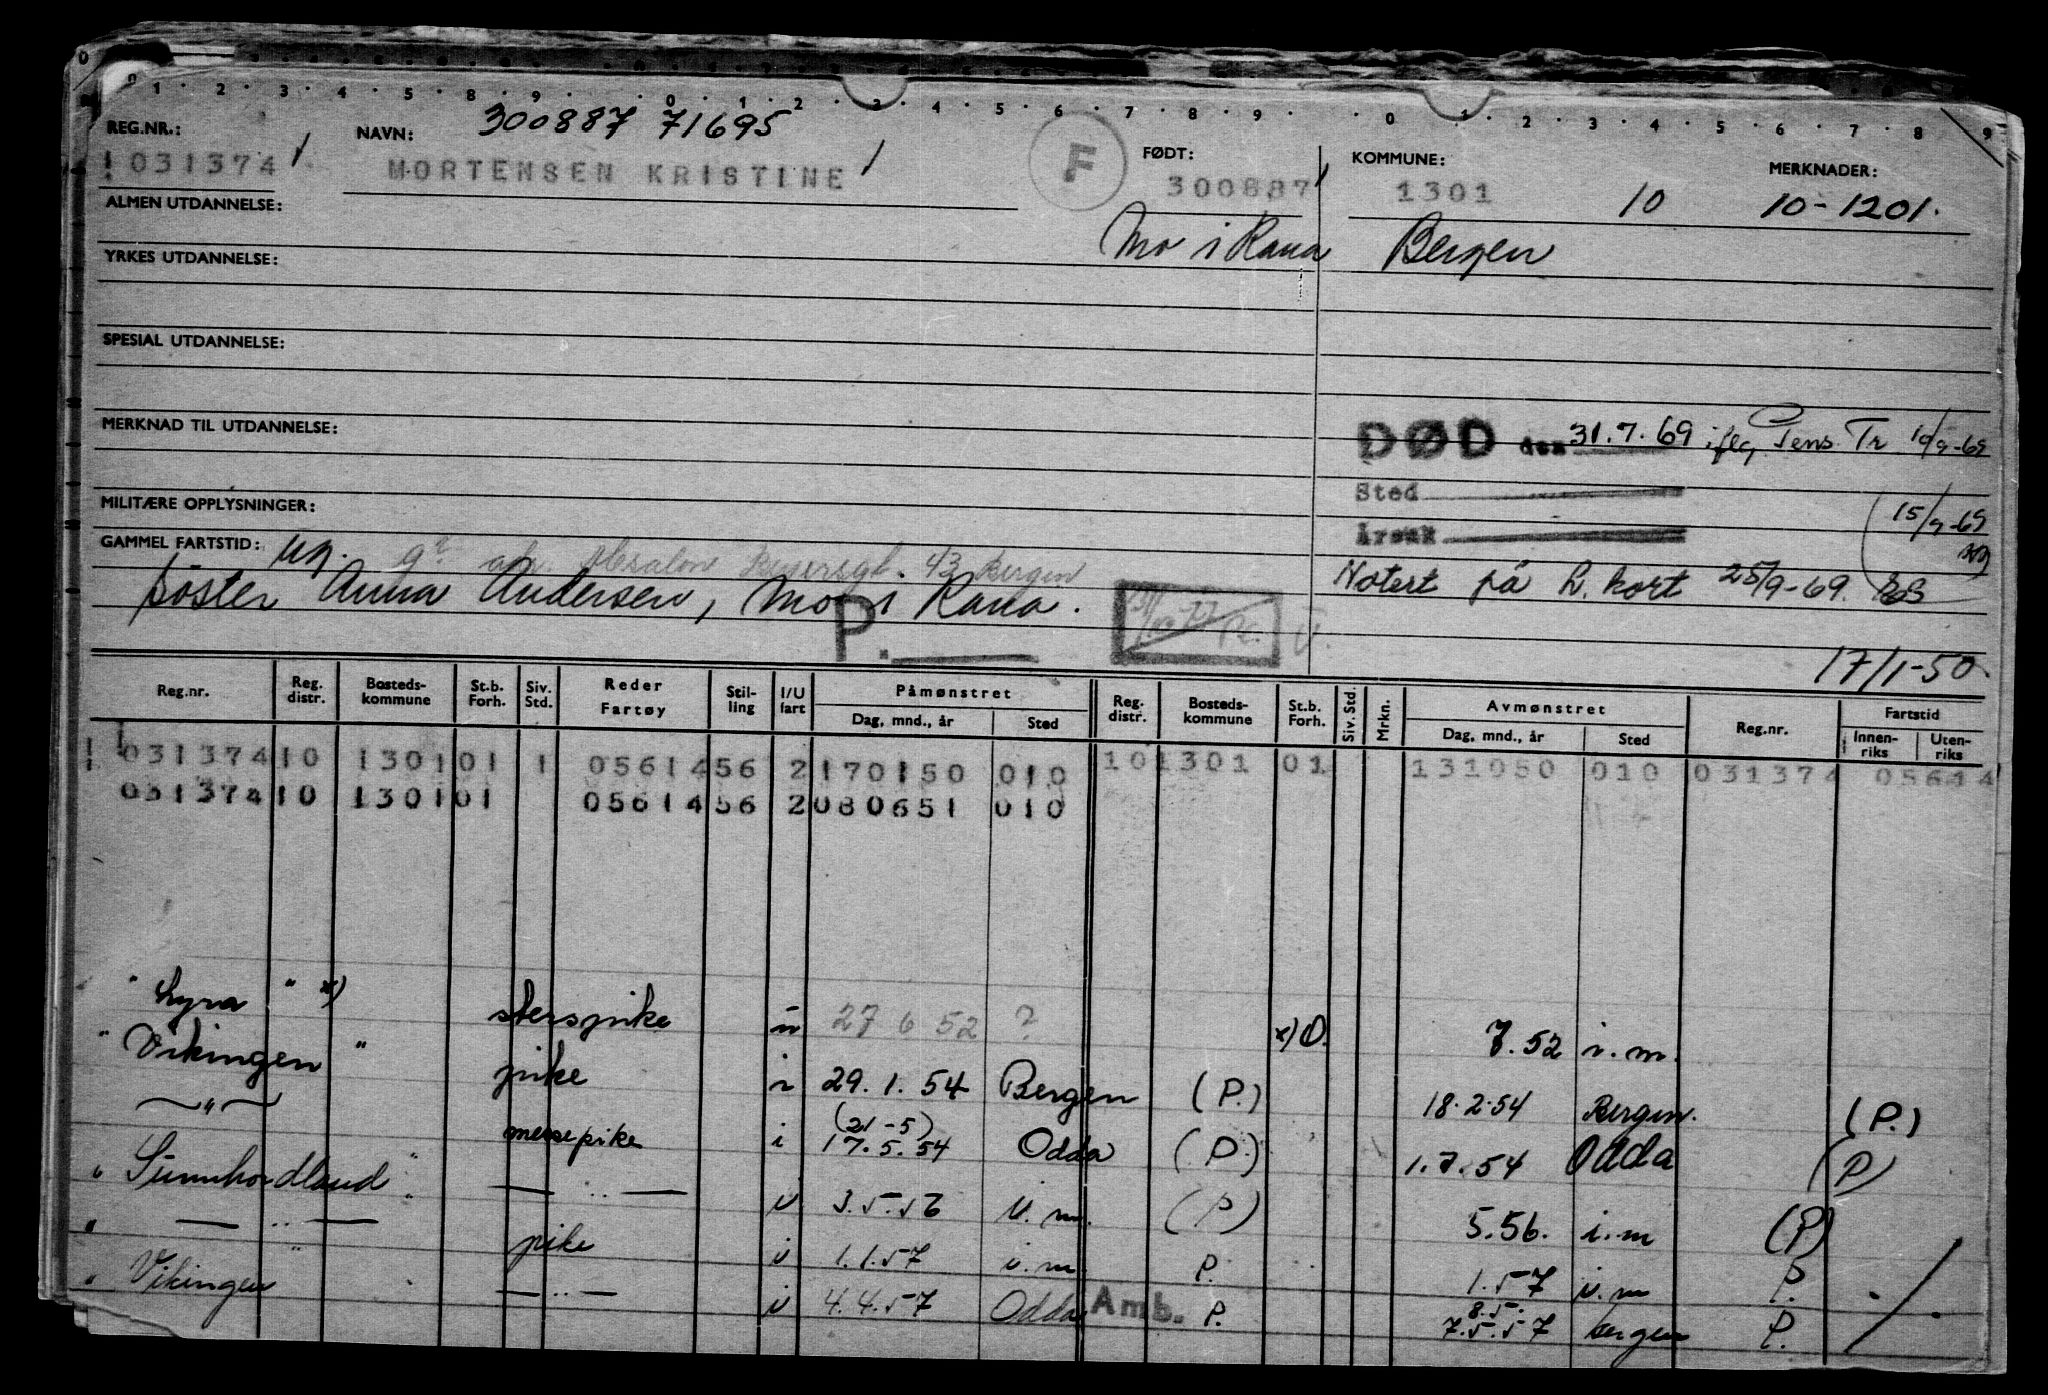 0 1 2 3 4 5 6 7 8 9 0 1 2 3 4 5 6 7 8 9 0 1 2 3 4 5 6 7 8 9
REG.NR.: NAVN: 300887 71695 F FØDT: KOMMUNE: MERKNADER:
031374 MORTENSEN KRISTINE 300887 1301 10 10-1201.
ALMEN UTDANNELSE:
Mo i Rana Bergen
YRKES UTDANNELSE:
SPESIAL UTDANNELSE:
MERKNAD TIL UTDANNELSE:
DØD den 31.7.69 iflg Pens. Tr 10/9-69
Sted
MILITÆRE OPPLYSNINGER: 15/9-69
Årsak
GAMMEL FARTSTID: ug. adr. Absalon Beyersgt. 43 Bergen
søster Anna Andersen, Mo i Rana.
Notert på L. kort 25/9-69.
P.
17/1-50.
Reg.nr. Reg. distr. Bosteds-kommune St.b. Forh. Siv. Std. Reder Fartøy Stil-ling I/U fart Påmønstret Dag, mnd., år Sted Reg. distr. Bosteds-kommune St.b. Forh. Siv. Std. Mrkn. Avmønstret Dag, mnd., år Sted Reg.nr. Fartstid Innen-riks Uten-riks
031374 10 1301 01 1 05614 56 2 170150 010 10 1301 01 131050 010 031374 05614
031374 10 1301 01 05614 56 2 080651 010
" Lyra " x) u 27 6 52 ? x) O. 7.52 i.m.
" Vikingen " pike i 29.1.54 Bergen (P.) 18.2.54 Bergen. (P.)
—"— messepike i (21-5) 17.5.54 Odda (P.) 1.7.54 Odda (P)
" Sunnhordland " —"— i 3.5.56 i.m. (P) 5.56. i.m (P)
" —"— pike i 1.1.57 i.m. P. 1.57 i.m P.
" Vikingen —"— i 4.4.57 Odda Amb. P. 8.5. 7.5.57 Bergen P.